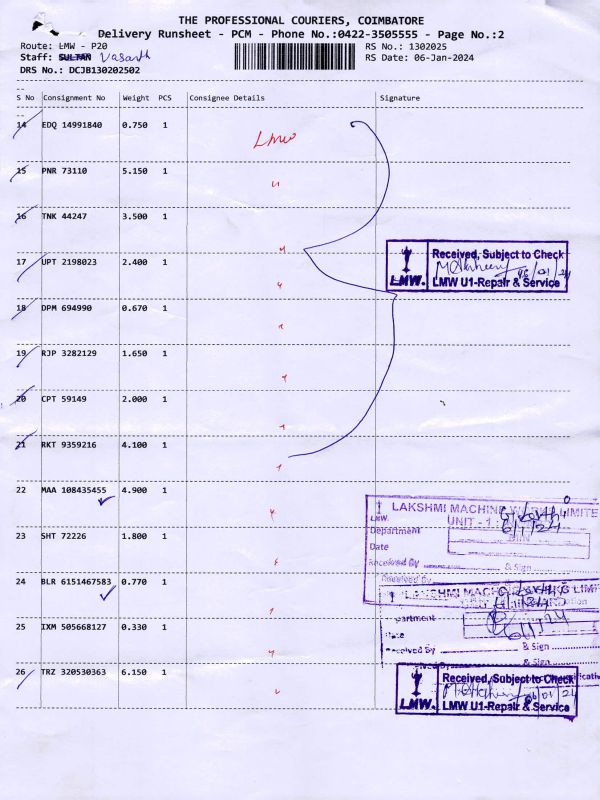 THE PROFESSIONAL COURIERS, COIMBATORE
Delivery Runsheet - PCM - Phone No.:0422-3505555 - Page No.:2
Route: LMW - P20
RS No.: 1302025
Staff: SULTAN Vasanth
RS Date: 06-Jan-2024
DRS No.: DCJB130202502
S No Consignment No Weight PCS Consignee Details Signature
14 EDQ 14991840 0.750 1 LMW
15 PNR 73110 5.150 1 "
16 TNK 44247 3.500 1 "
17 UPT 2198023 2.400 1 "
Received, Subject to Check
06/01/24
LMW. LMW U1-Repair & Service
18 DPM 694990 0.670 1 "
19 RJP 3282129 1.650 1 "
20 CPT 59149 2.000 1 "
21 RKT 9359216 4.100 1 "
22 MAA 108435455 4.900 1 "
LAKSHMI MACHINE WORKS LIMITE
LMW. UNIT - 1
6/1/24
Department
Date
23 SHT 72226 1.800 1 "
Received By & Sign
Received By
24 BLR 6151467583 0.770 1 "
LAKSHMI MACHINE LIMI
6/1/24
25 IXM 505668127 0.330 1 "
Received By & Sign
& Sign
26 TRZ 320530363 6.150 1 "
Received, Subject to Check
06/01/24
LMW. LMW U1-Repair & Service